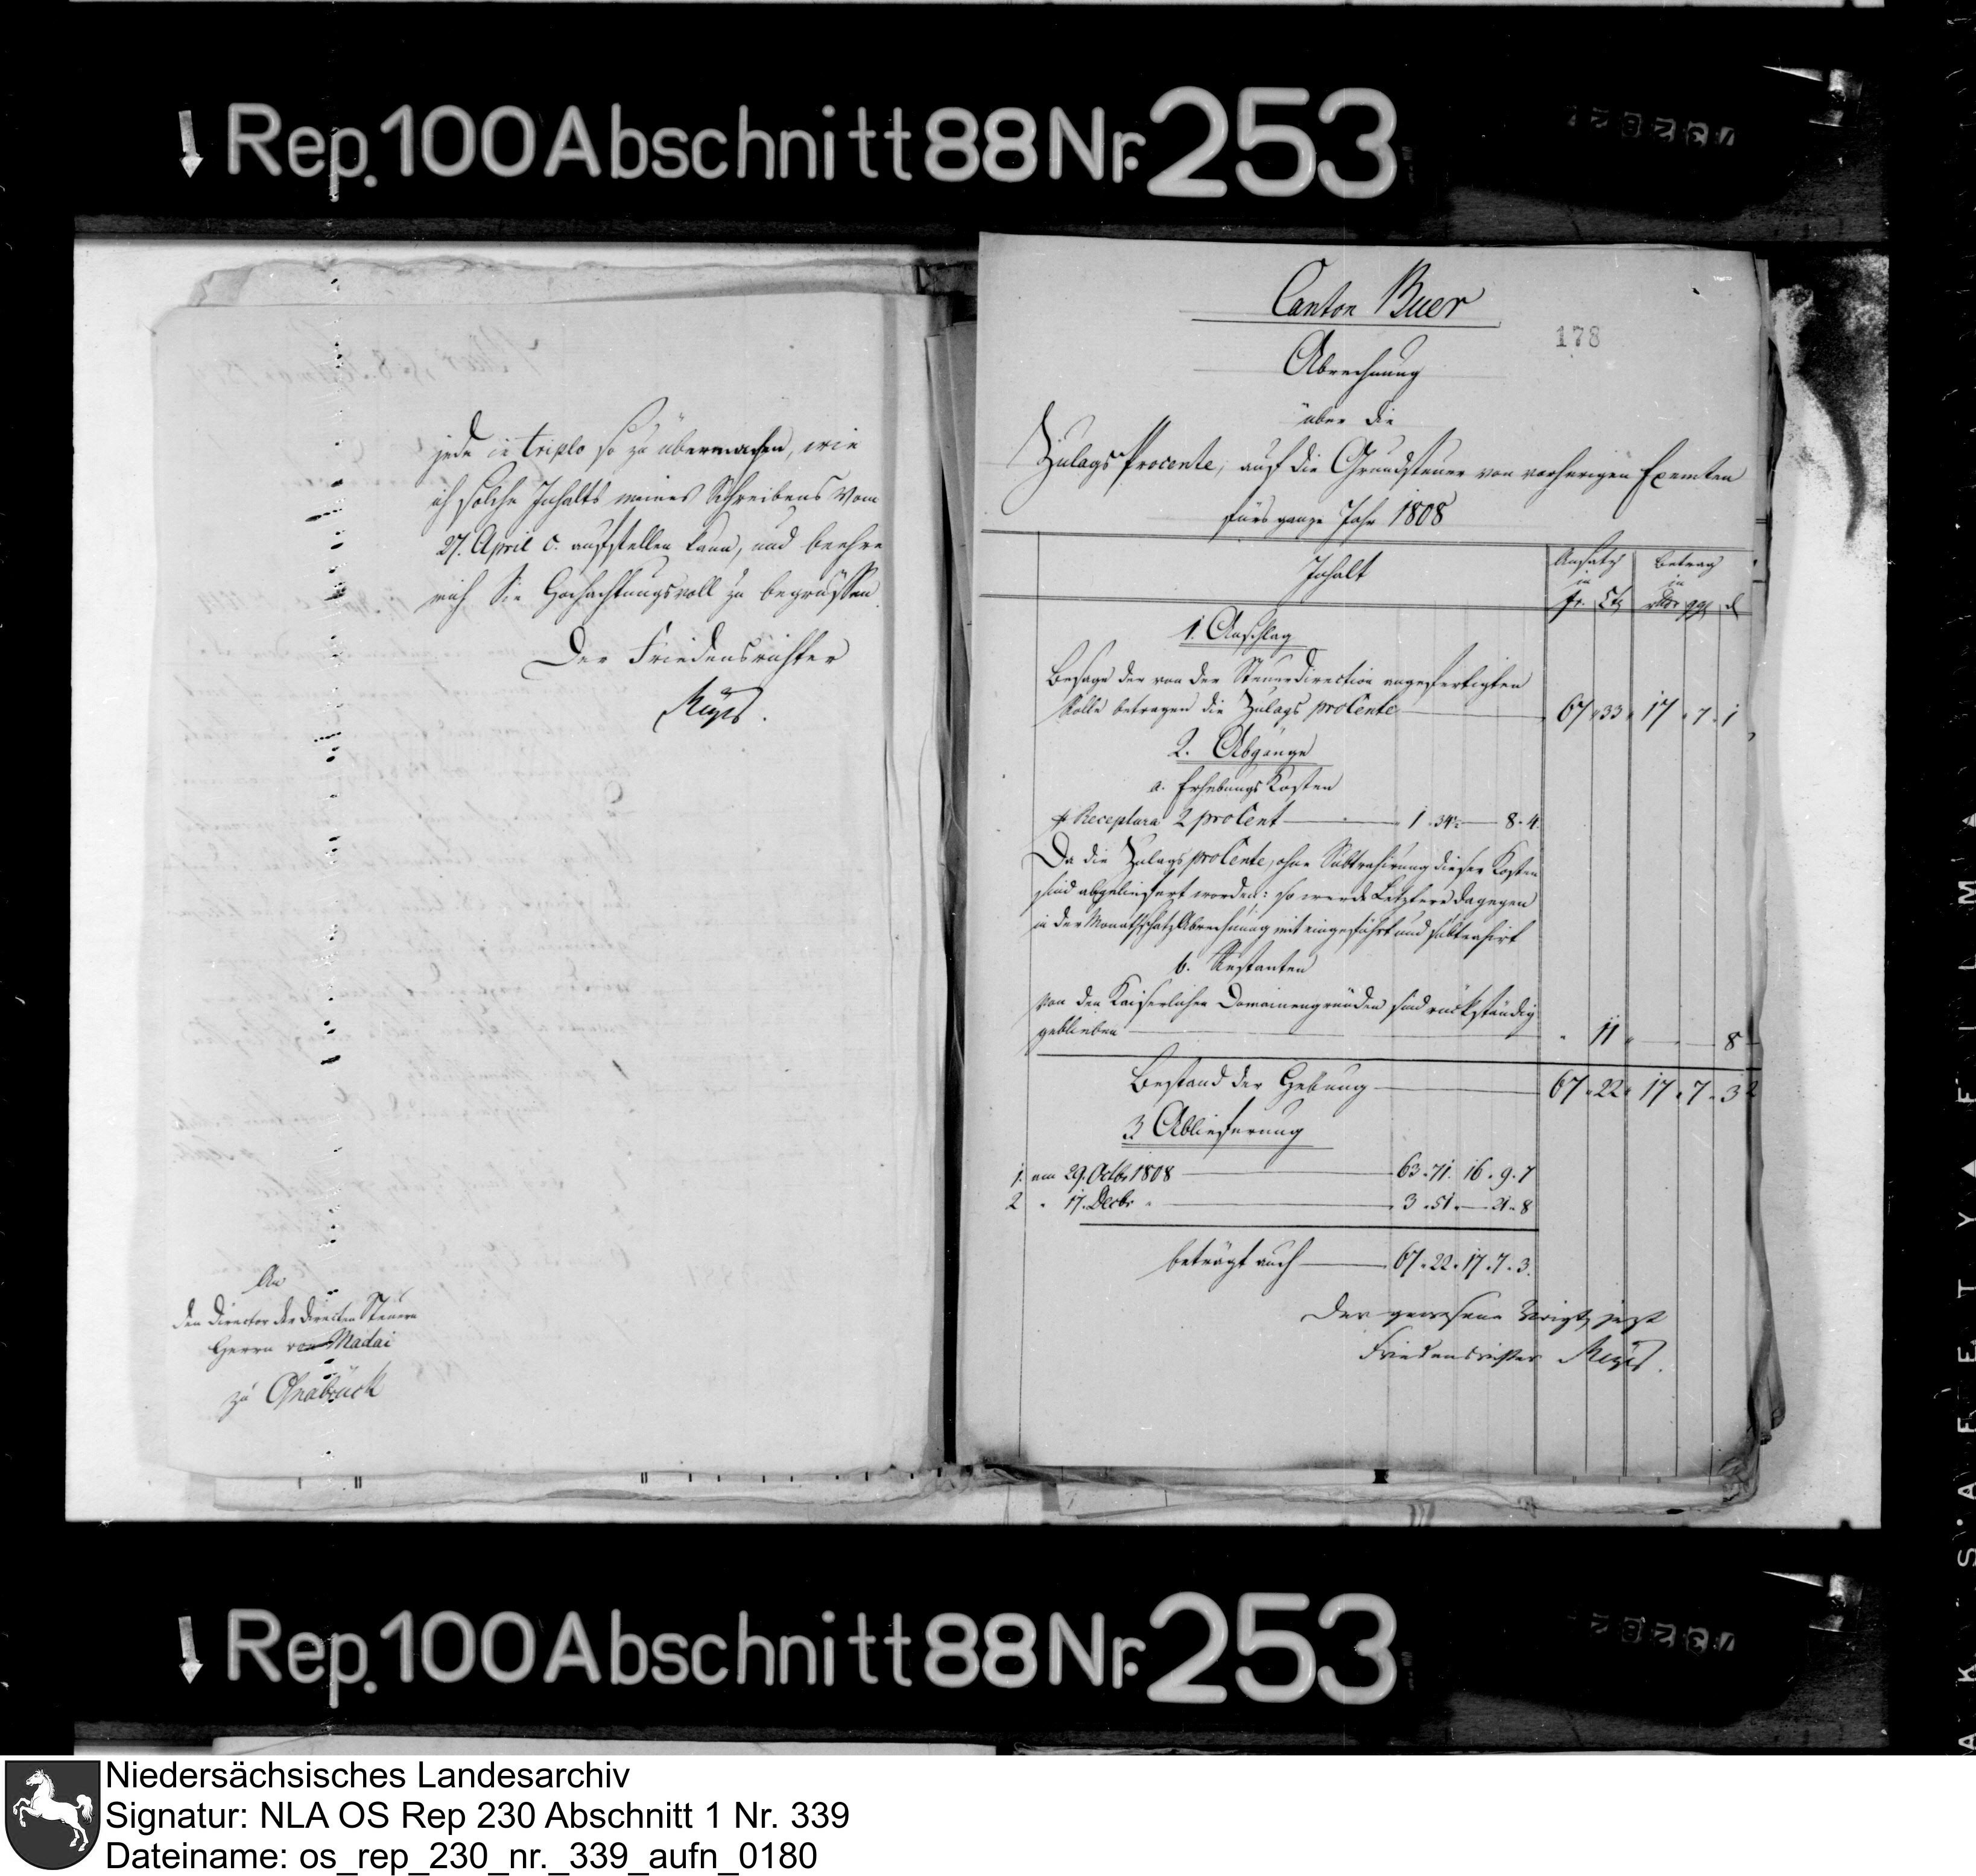 Rep. 100 Abschnitt 88 Nr. 253
jede in triplo so zu übermachen, wie
ich solche Inhalts meines Schreibens vom
27. April c. aufstellen kann, und beehre
mich Sie Hochachtungsvoll zu begrüssen
Der Friedensrichter
An
den Director der directen Steuern
Herrn von Madai
zu Osnabrück
Canton Buer
178
Abrechnung
über die
Zulags Procente, auf die Grundsteuer von vorherigen Exemten
fürs ganze Jahr 1808
Inhalt Ansatz in fr. Cts Betrag in rthr ggl d
1. Anschlag
Besage der von der Steuerdirection angefertigten
Rolle betragen die Zulags proCente 67 33 17 7 1
2. Abgänge
a. Erhebungs Kosten
Receptura 2 proCent 1 34 8 4
Da die Zulags proCente, ohne Subtrahirung dieser Kosten
sind abgeliefert worden: so werde Letztere dagegen
in der Monathschatz Abrechnung mit eingeführt und subtrahirt
b. Restanten
von den Kaiserlichen Domainengründen sind rückständig
geblieben 11 8
Bestand der Hebung 67 22 17 7 3
3 Ablieferung
1. am 29. Octbr 1808 63 71 16 9 7
2 " 17. Decbr " 3 51 21 8
beträgt auch 67 22 17 7 3
Der gewesene Voigt, jezt
Friedensrichter
Rep. 100 Abschnitt 88 Nr. 253
Niedersächsisches Landesarchiv
Signatur: NLA OS Rep 230 Abschnitt 1 Nr. 339
Dateiname: os_rep_230_nr._339_aufn_0180